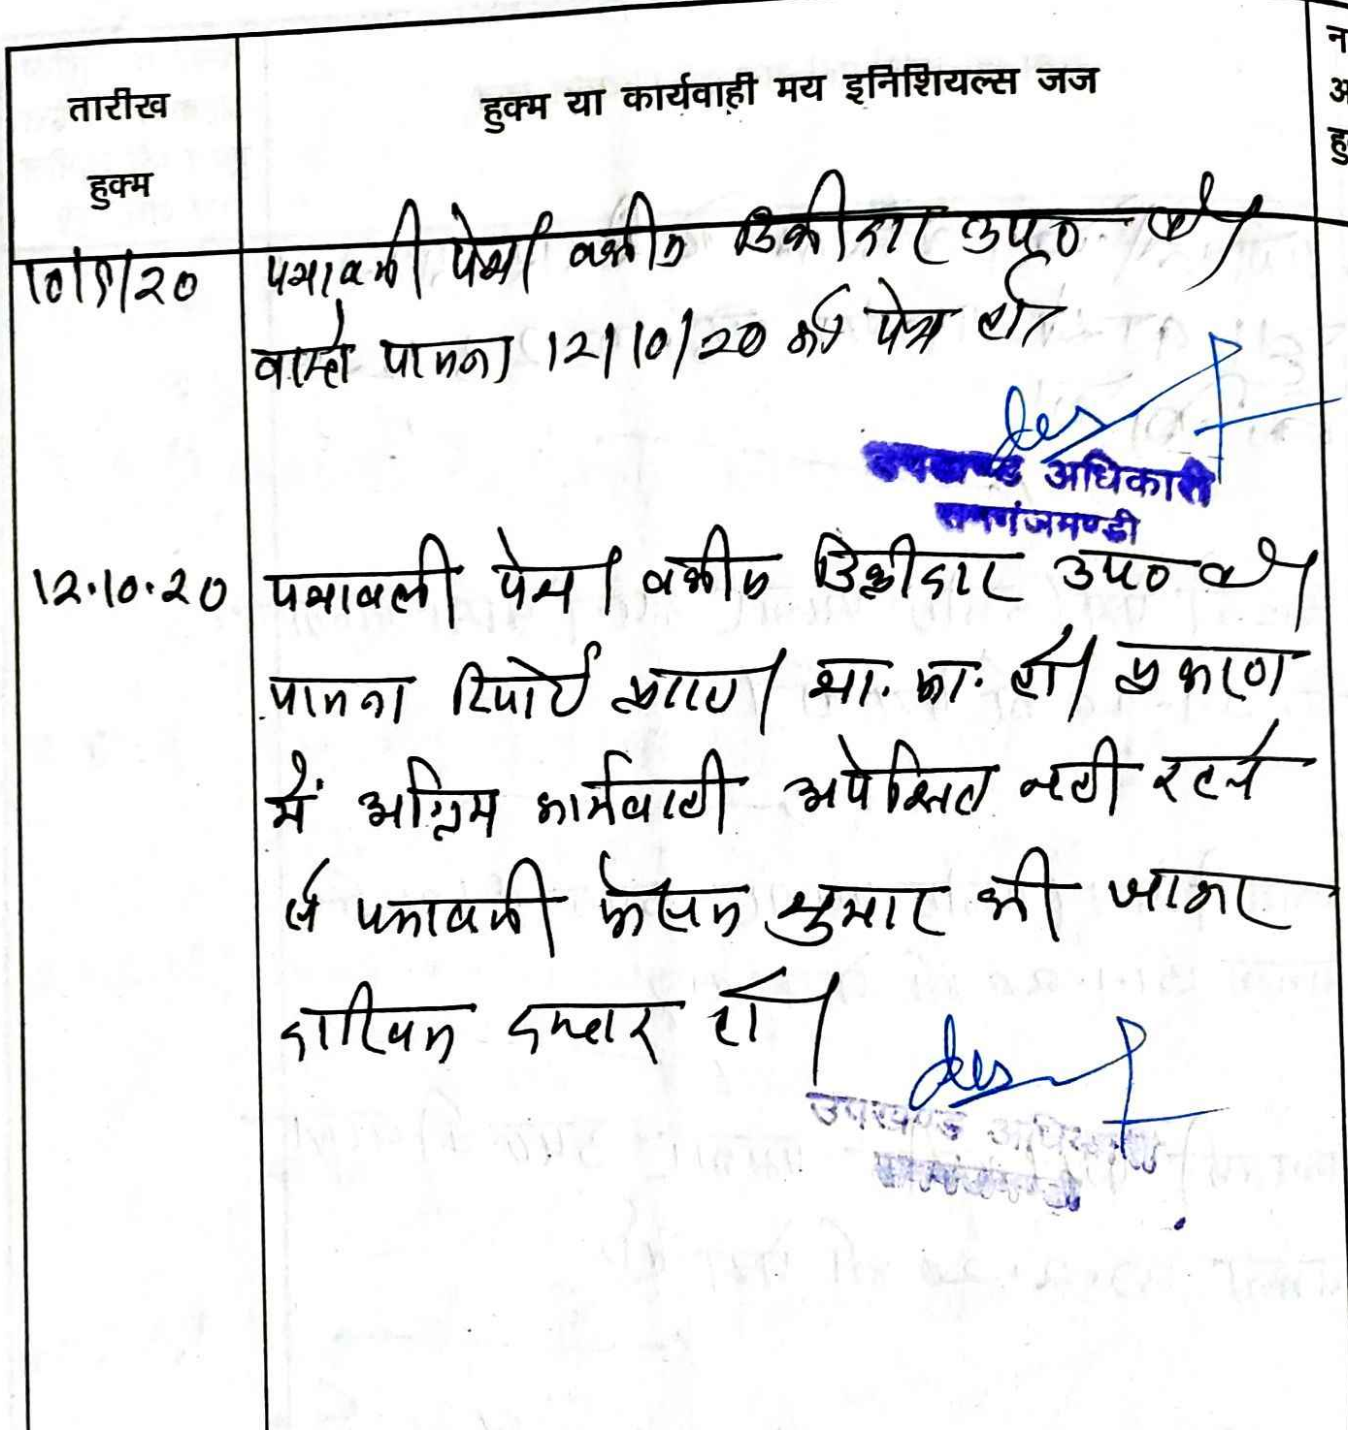 तारीख
हुक्म
हुक्म या कार्यवाही मय इनिशियल्स जज
न
अ
हु
10/9/20
पत्रावली पेश। वकील डिक्रीदार उप० है।
वास्ते पालना 12/10/20 को पेश हो।
उपखण्ड अधिकारी
रामगंजमण्डी
12.10.20
पत्रावली पेश। वकील डिक्रीदार उप० है।
पालना रिपोर्ट प्राप्त। शा. फा. हो। प्रकरण
में अग्रिम कार्यवाही अपेक्षित नही रहने
से पत्रावली फैसल शुमार की जाकर
दाखिल दफ्तर हो।
उपखण्ड अधिकारी
रामगंजमण्डी